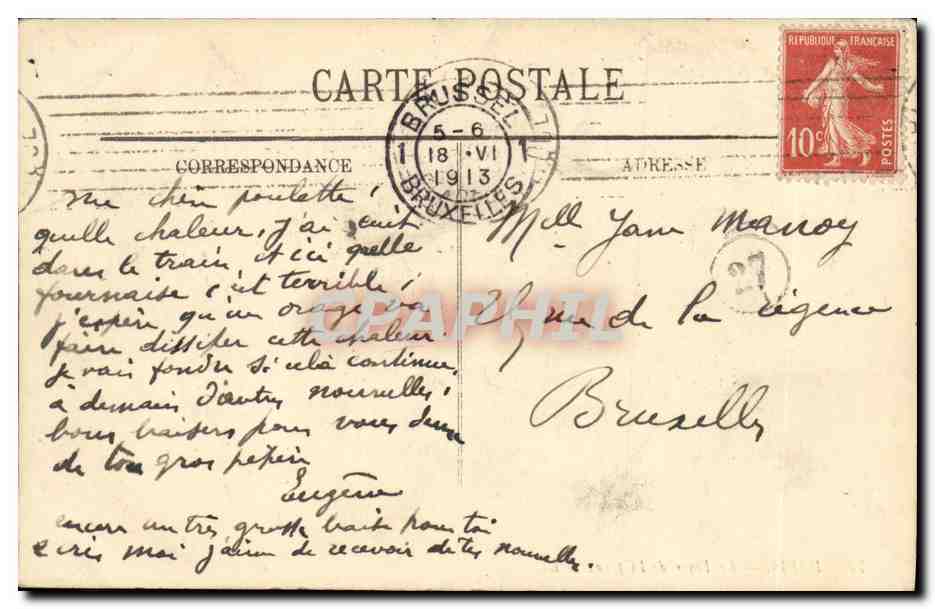 REPUBLIQUE FRANÇAISE
10c
POSTES
CARTE POSTALE
BRUSSEL
5-6
1 18 VI 1
1913
BRUXELLES
CORRESPONDANCE
ADRESSE
ma chère poulette,
quelle chaleur, j'ai cuit
dans le train, et ici quelle
fournaise, c'est terrible,
j'espère qu'un orage va
faire dissiper cette chaleur
je vais fondre si cela continue,
à demain d'autres nouvelles,
bons baisers pour vous deux
de ton gros pépère
Eugène
encore un très grosse baise pour toi
ecris moi j'aime de recevoir de tes nouvelles.
Mlle Jane Manoy
27
rue de la régence
Bruxelles
CPAPHIL